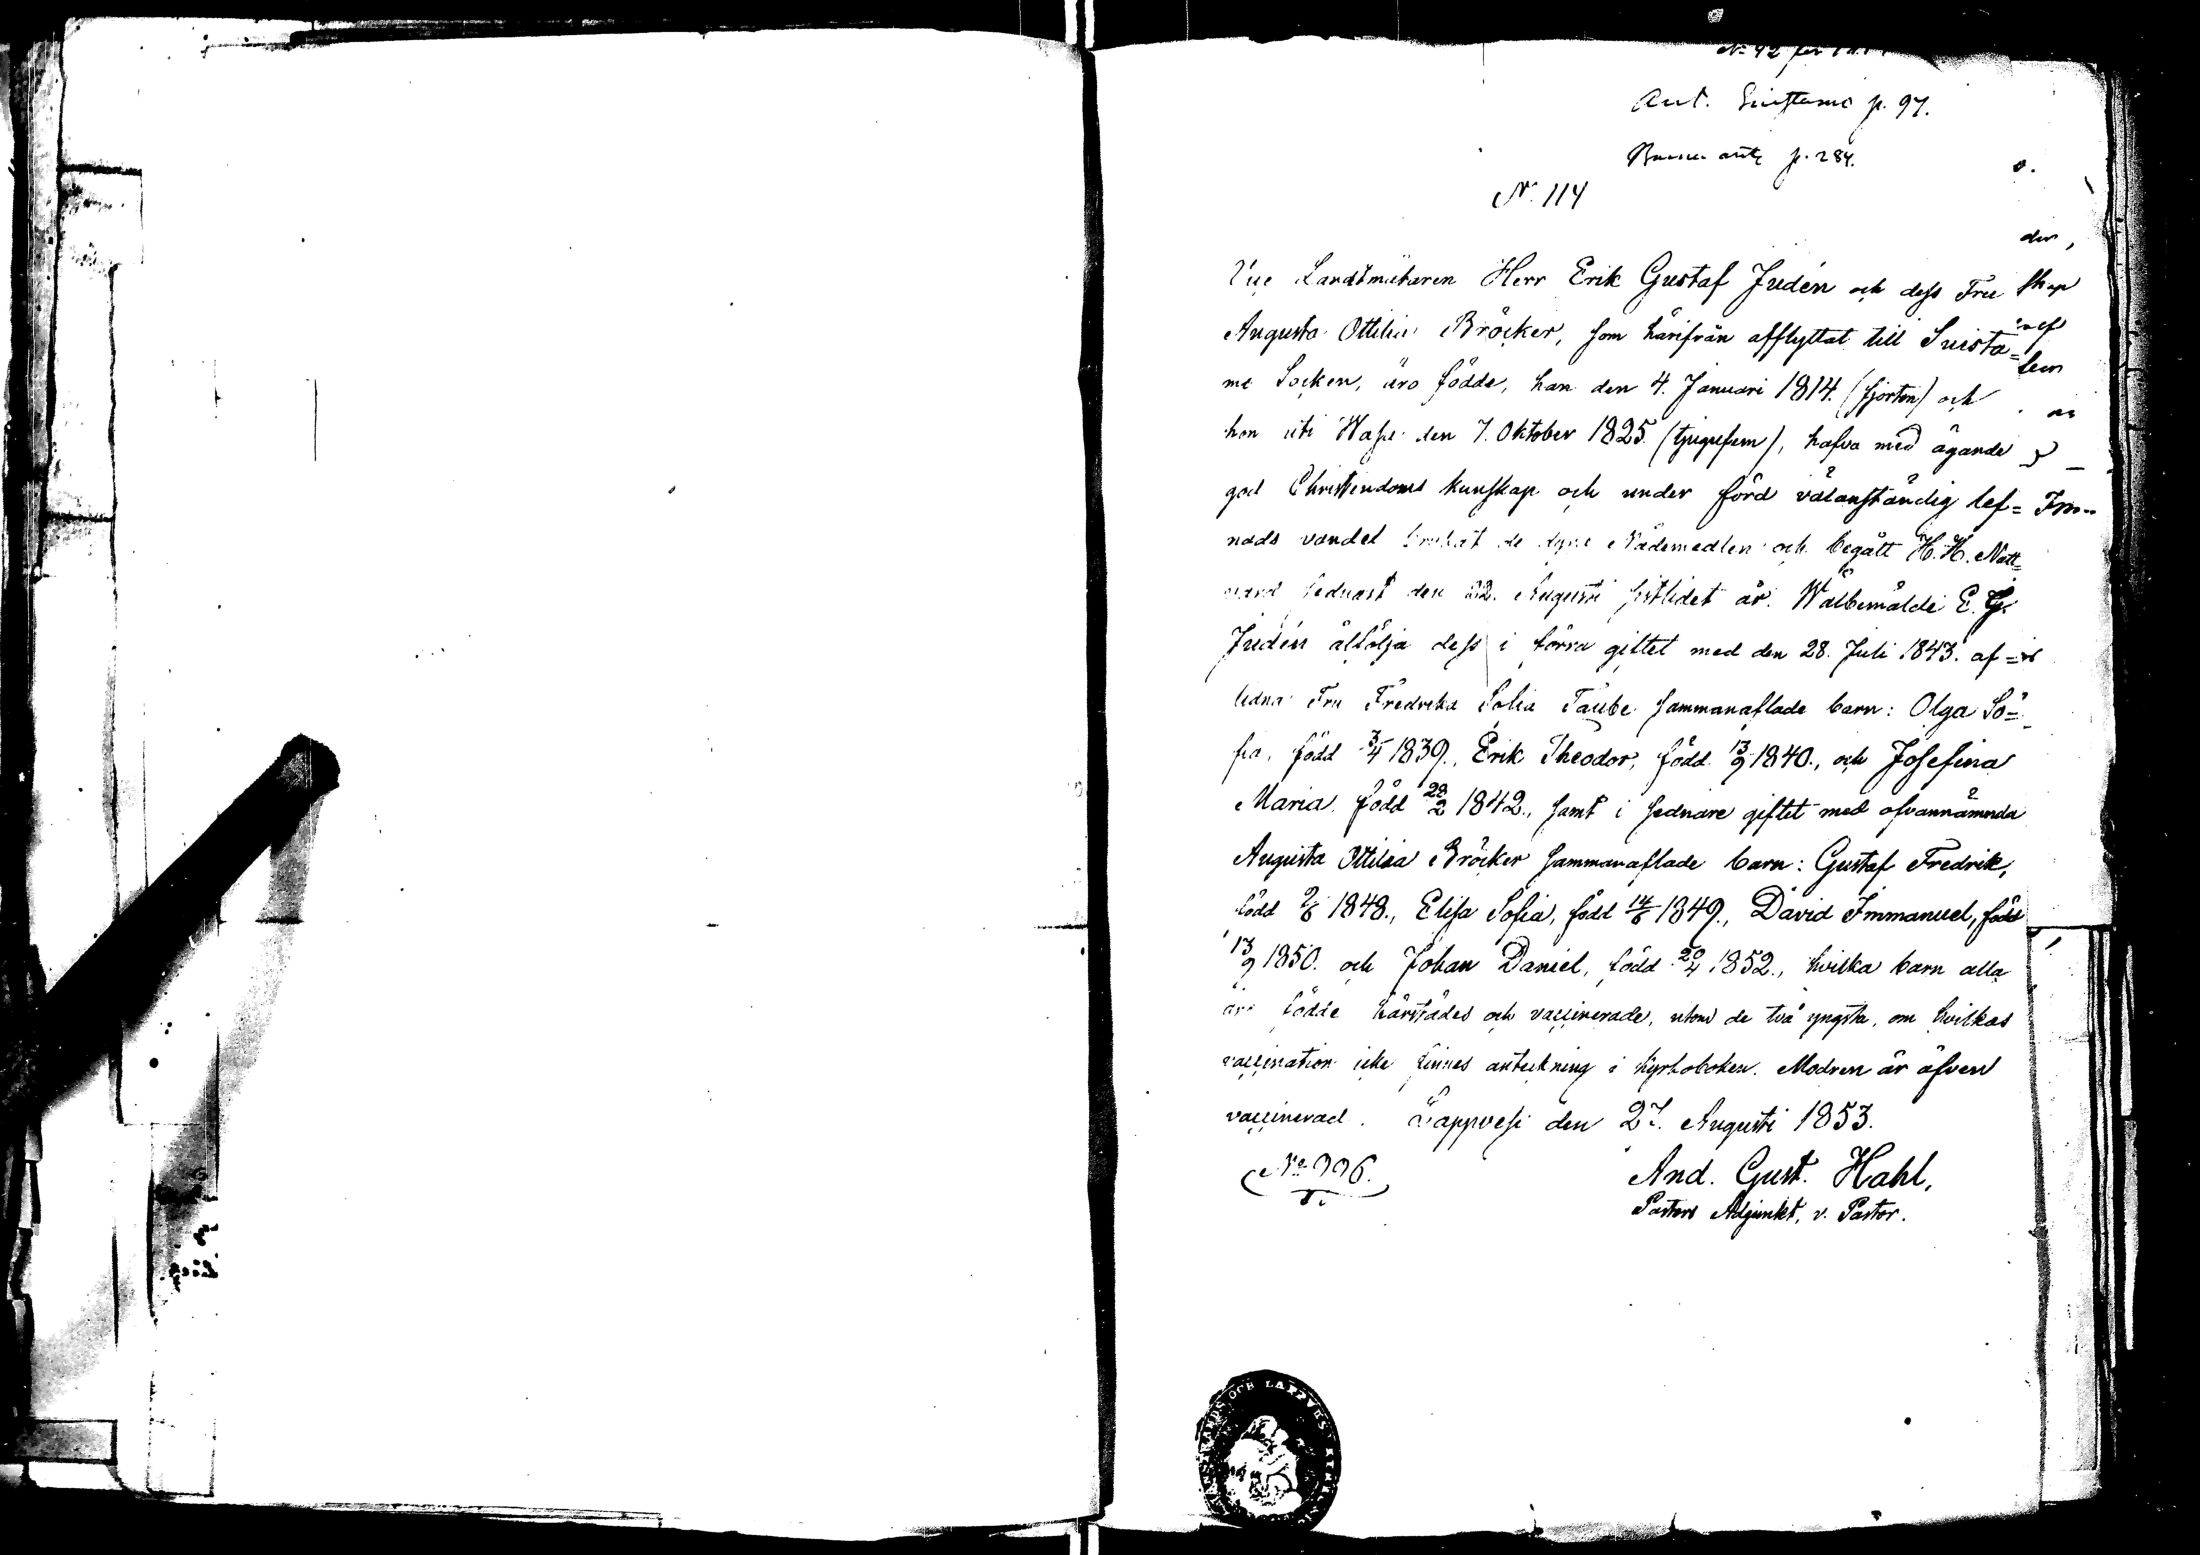 Ant. Suistamo p. 97.
Barne antz p. 284.
N. 114
Landtmätaren Herr Erik Gustaf Judén och dess Fru
Augusta Ottilia Bröcker, som härifrån afflyttat till Suista=
mo Socken, äro födde, han den 4. Januari 1814. (fjorton) och
hon uti Wasa den 7. Oktober 1825. (tjugufem), hafva med ägande
god Christendoms kunskap och under förd välanständig lef=
nads vandel brukat de dyra Nådemedlen och begått H. H. Natt=
vard sednast den 22. Augusti sistlidet år. Wälbemälde E. G.
Judén åtfölja dess i förra giftet med den 28. Juli 1843. af=
lidna Fru Fredrika Sofia Taube sammanaflade barn: Olga So=
fia, född 3/4 1839., Erik Theodor, född 13/9 1840., och Josefina
Maria född 28/2 1842., samt i sednare giftet med ofvannämnda
Augusta Ottilia Bröcker sammanaflade barn: Gustaf Fredrik,
född 1848., Elisa Sofia, född 14/6 1849., David Immanuel, född
13/9 1850. och Johan Daniel, född 20/4 1852., hvilka barn alla
äro födde härstädes och vaccinerade, utom de två yngsta, om hvilkas
vaccination icke finnes anteckning i kyrkoboken. Modren är äfven
vaccinerad. Lappvesi den 27. Augusti 1853.
And. Gust. Hahl,
Pastors Adjunkt, v. Pastor.
OCH LAPPVES